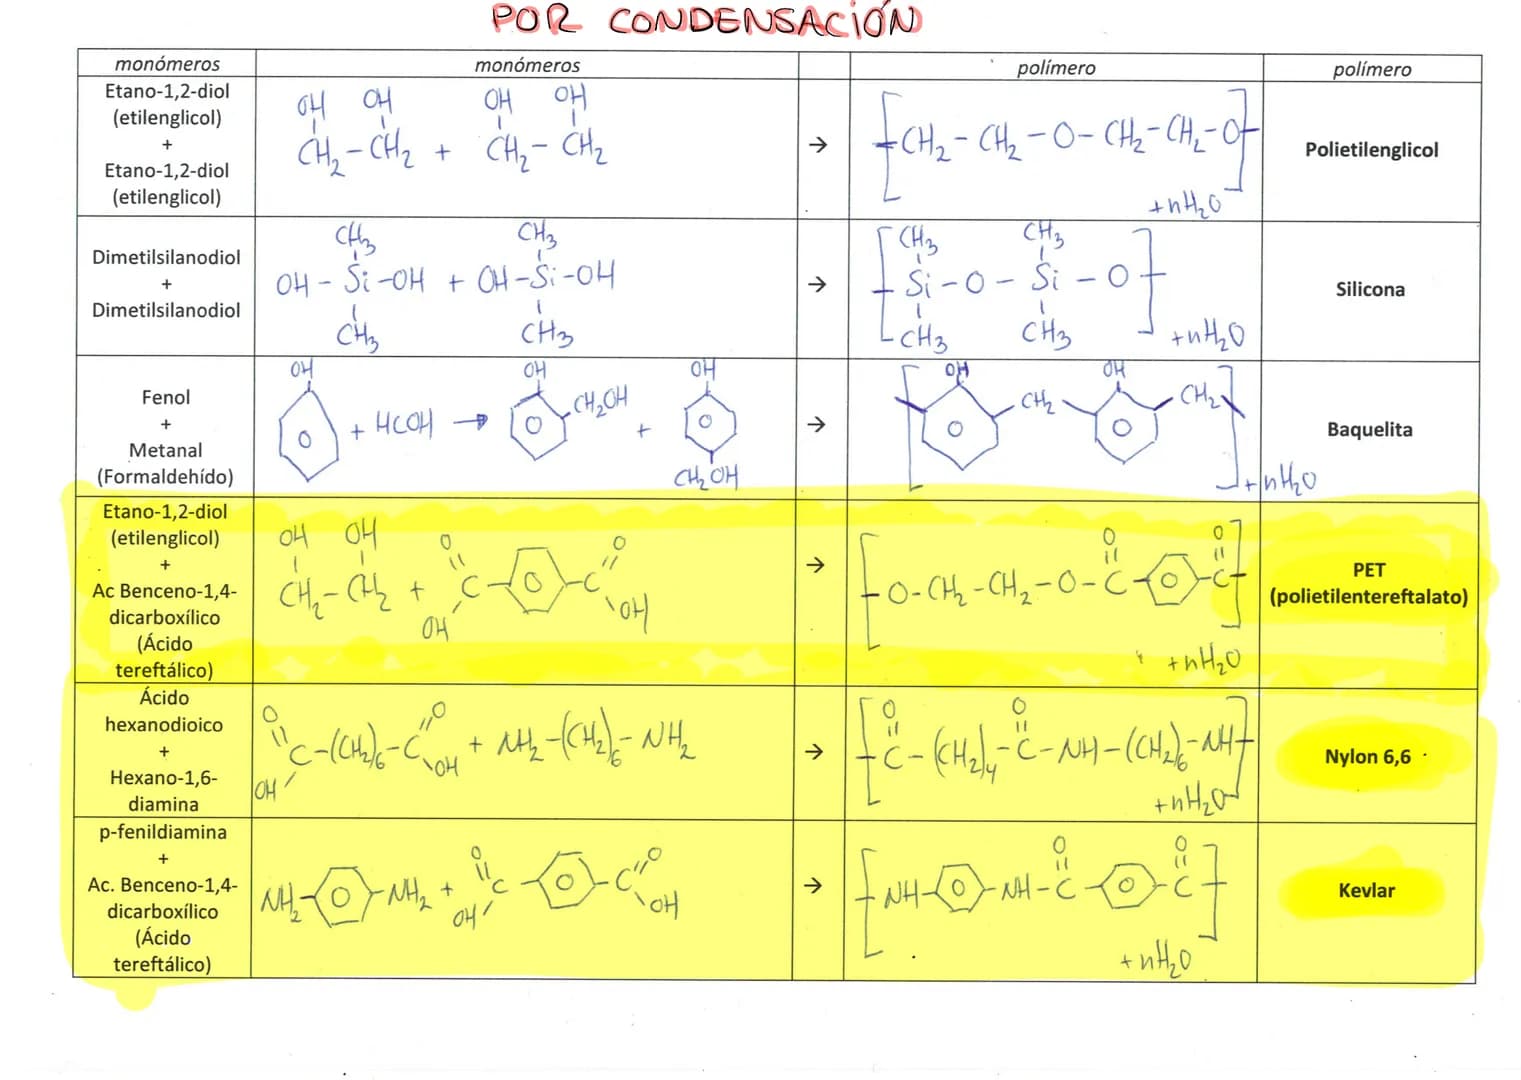 POR CONDENSACIÓN
monómeros monómeros polímero polímero
Etano-1,2-diol
(etilenglicol)
+
Etano-1,2-diol
(etilenglicol)
OH OH OH OH
CH2-CH2 + CH2-CH2
→
[CH2-CH2-O-CH2-CH2-O]
+nH2O
Polietilenglicol
Dimetilsilanodiol
+
Dimetilsilanodiol
CH3 CH3
OH-Si-OH + OH-Si-OH
CH3 CH3
→
CH3 CH3
[Si-O-Si-O]
CH3 CH3 +nH2O
Silicona
Fenol
+
Metanal
(Formaldehído)
OH OH OH
+ HCOH → CH2OH +
CH2OH
→
OH OH
CH2 CH2
+nH2O
Baquelita
Etano-1,2-diol
(etilenglicol)
+
Ac Benceno-1,4-
dicarboxílico
(Ácido
tereftálico)
OH OH O O
CH2-CH2 + C C
OH OH
→
O O
[O-CH2-CH2-O-C C]
+nH2O
PET
(polietilentereftalato)
Ácido
hexanodioico
+
Hexano-1,6-
diamina
O O
C-(CH2)6-C + NH2-(CH2)6-NH2
OH OH
→
O O
[C-(CH2)4-C-NH-(CH2)6-NH]
+nH2O
Nylon 6,6
p-fenildiamina
+
Ac. Benceno-1,4-
dicarboxílico
(Ácido
tereftálico)
O O
NH2 NH2 + C C
OH OH
→
O O
[NH NH-C C]
+nH2O
Kevlar